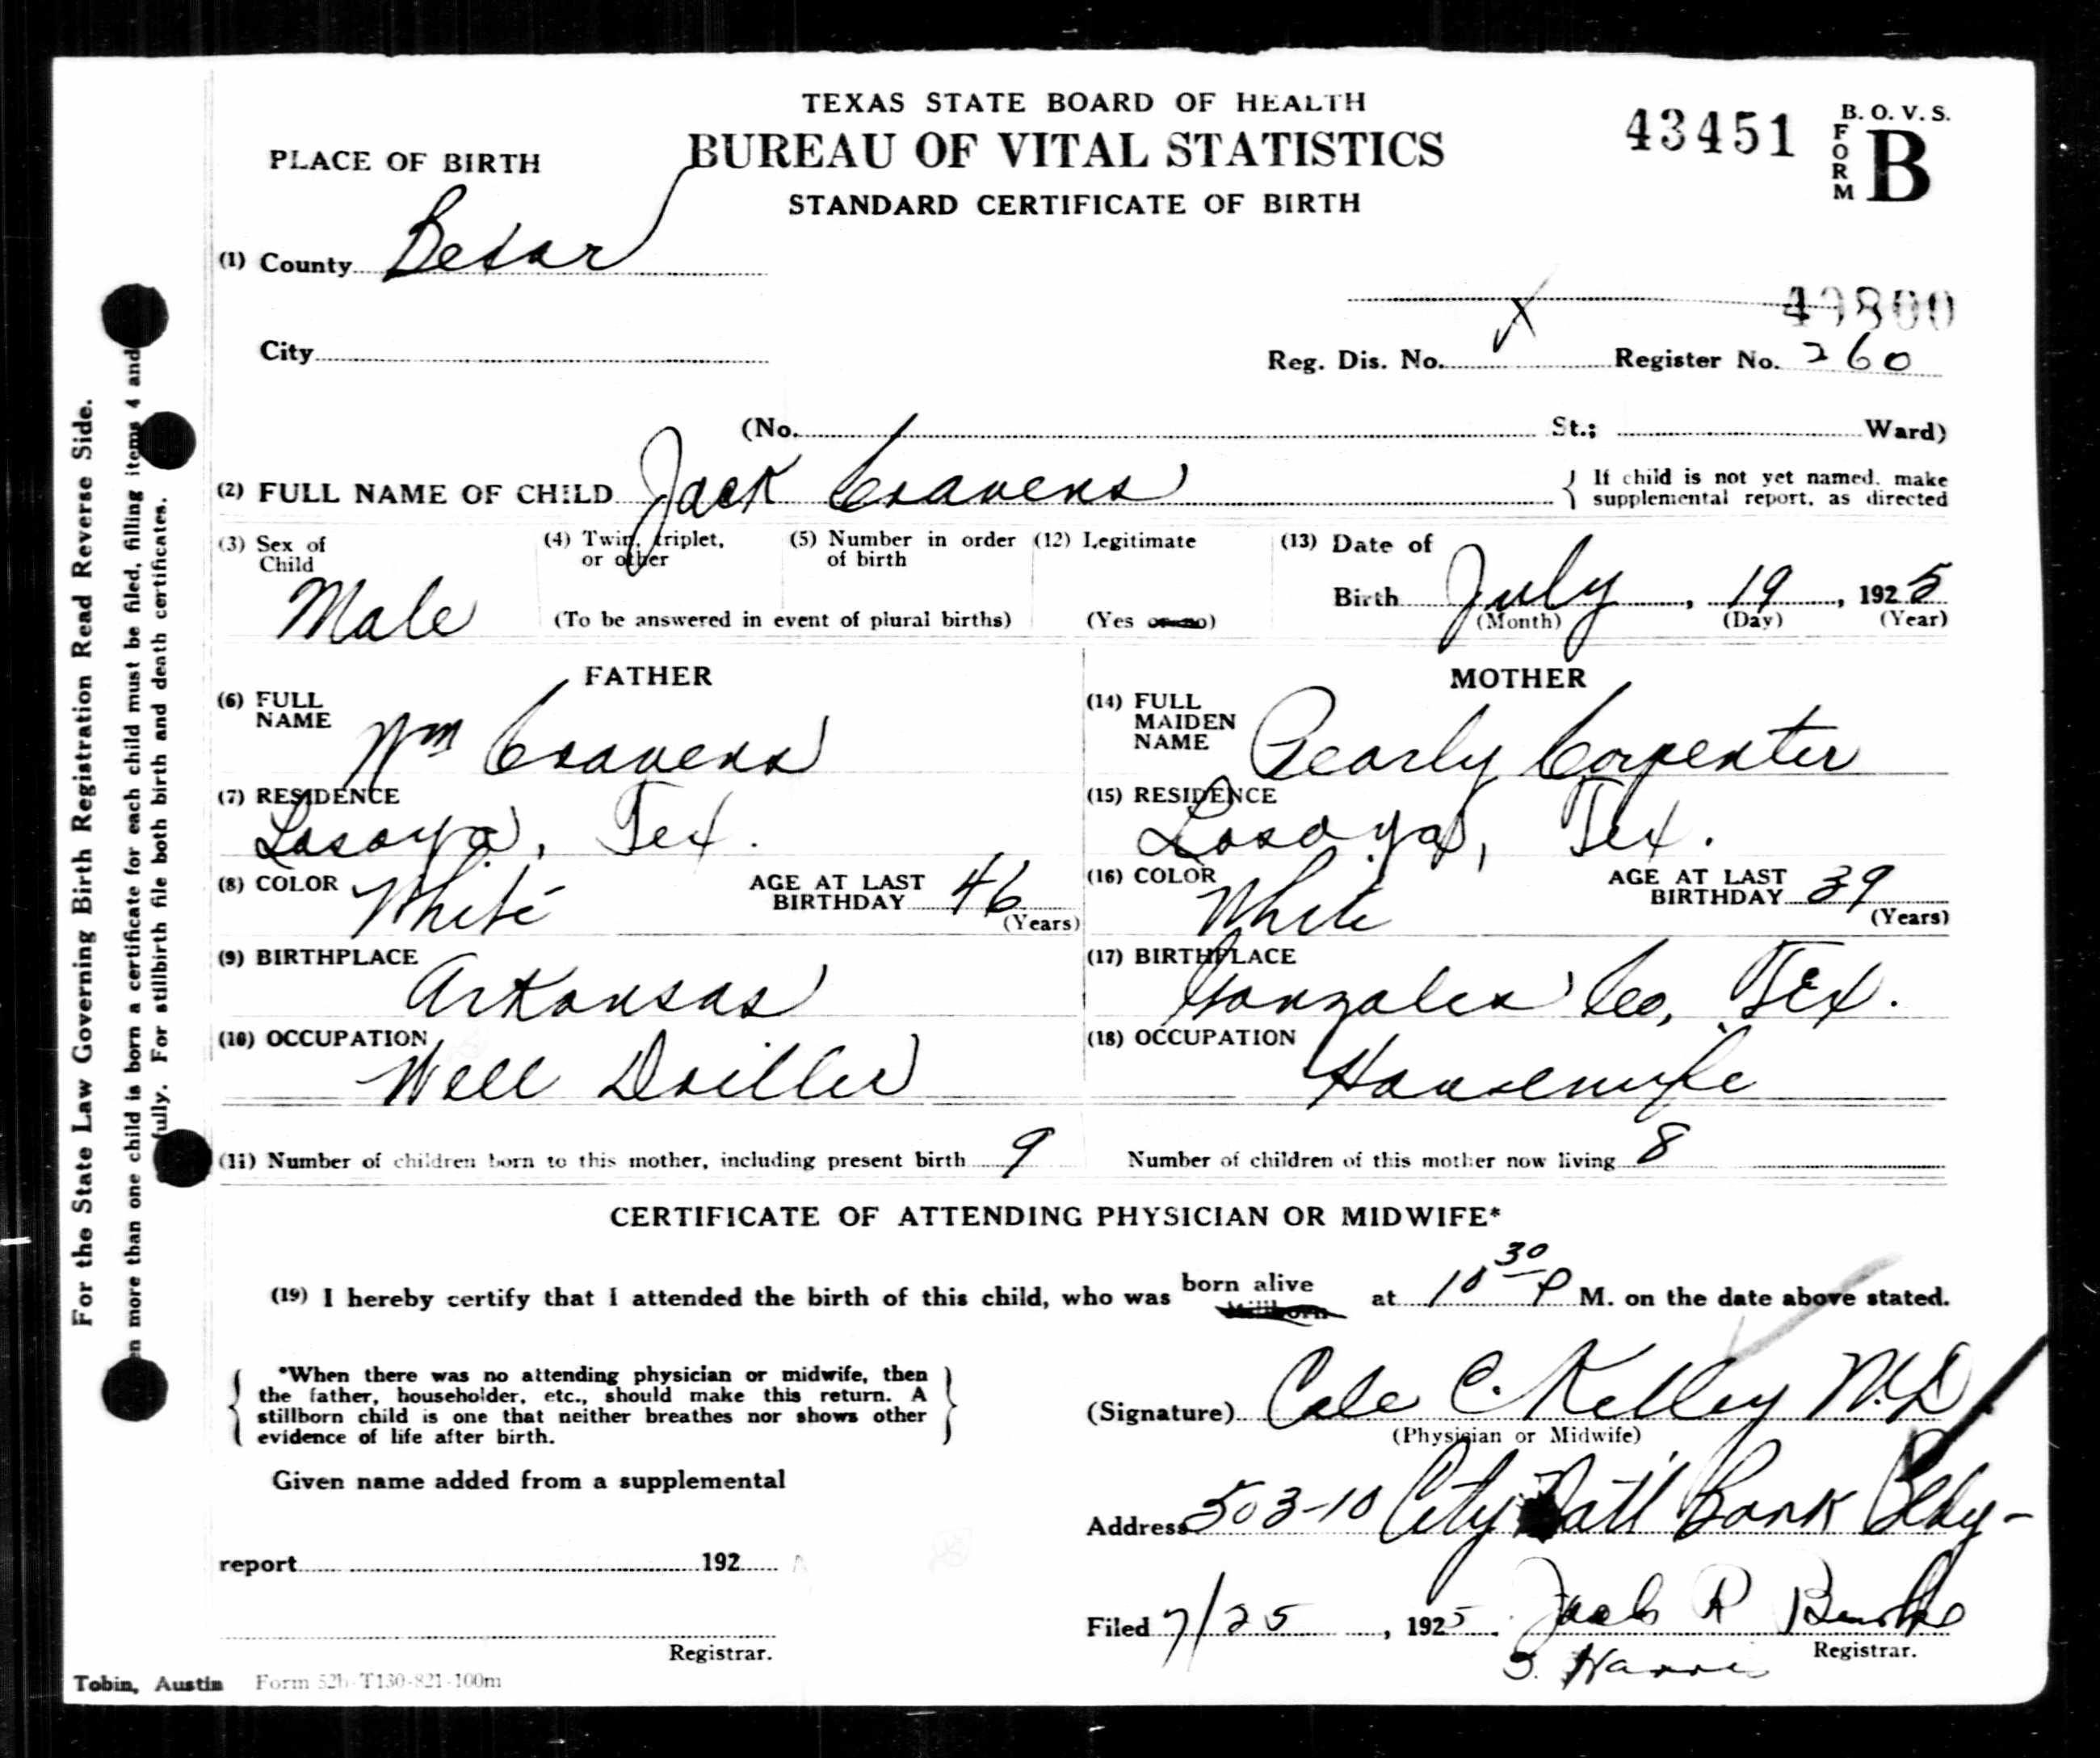 TEXAS STATE BOARD OF HEALTH
BUREAU OF VITAL STATISTICS
STANDARD CERTIFICATE OF BIRTH
43451
B. O. V. S.
FORM B
PLACE OF BIRTH
(1) County Bexar
49800
City
Reg. Dis. No. X Register No. 260
(No. St.; Ward)
(2) FULL NAME OF CHILD Jack Cravens { If child is not yet named, make
supplemental report, as directed
(3) Sex of Child Male
(4) Twin, triplet, or other
(5) Number in order of birth
(To be answered in event of plural births)
(12) Legitimate
(Yes or no)
(13) Date of
Birth July, 19, 1925
(Month) (Day) (Year)
FATHER
(6) FULL NAME Wm Cravens
(7) RESIDENCE
Losoya, Tex.
(8) COLOR White AGE AT LAST BIRTHDAY 46 (Years)
(9) BIRTHPLACE
Arkansas
(10) OCCUPATION
Well Driller
MOTHER
(14) FULL MAIDEN NAME Pearly Carpenter
(15) RESIDENCE
Losoya, Tex.
(16) COLOR White AGE AT LAST BIRTHDAY 39 (Years)
(17) BIRTHPLACE
Gonzales Co, Tex.
(18) OCCUPATION
Housewife
(11) Number of children born to this mother, including present birth 9 Number of children of this mother now living 8
CERTIFICATE OF ATTENDING PHYSICIAN OR MIDWIFE*
(19) I hereby certify that I attended the birth of this child, who was born alive stillborn at 10 30 P M. on the date above stated.
*When there was no attending physician or midwife, then
the father, householder, etc., should make this return. A
stillborn child is one that neither breathes nor shows other
evidence of life after birth.
(Signature) Cale C. Kelley M.D.
(Physician or Midwife)
Given name added from a supplemental
Address 503-10 City Natl Bank Bldg-
report 192
Filed 7/25, 1925. Jacob R
Registrar. Registrar.
S. Harris
Tobin, Austin Form 52b-T130-821-100m
For the State Law Governing Birth Registration Read Reverse Side.
more than one child is born a certificate for each child must be filed, filling items 4 and
fully. For stillbirth file both birth and death certificates.